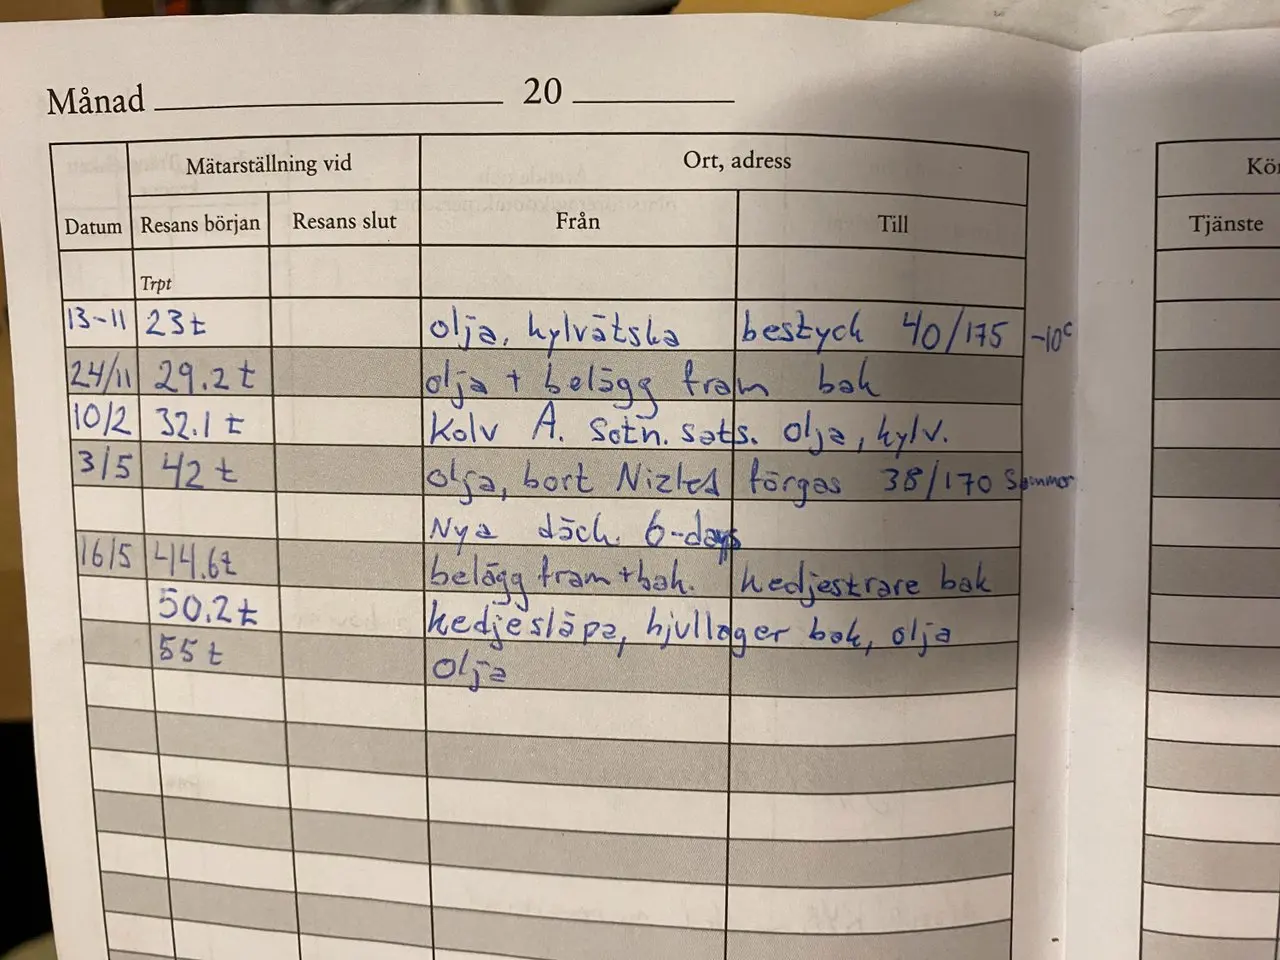 Månad 20
Mätarställning vid Ort, adress Kör
Datum Resans början Resans slut Från Till Tjänste
Trpt
13-11 23 t olja, kylvätska bestyck 40/175 -10°
24/11 29.2 t olja + belägg fram bak
10/2 32.1 t Kolv A. Sotn. sats. olja, kylv.
3/5 42 t olja, bort förgas 38/170 Sommar
Nya däck. 6-days
16/5 44.6t belägg fram+bak. kedjestrare bak
50.2 t kedjesläpa, hjullager bak, olja
55 t olja